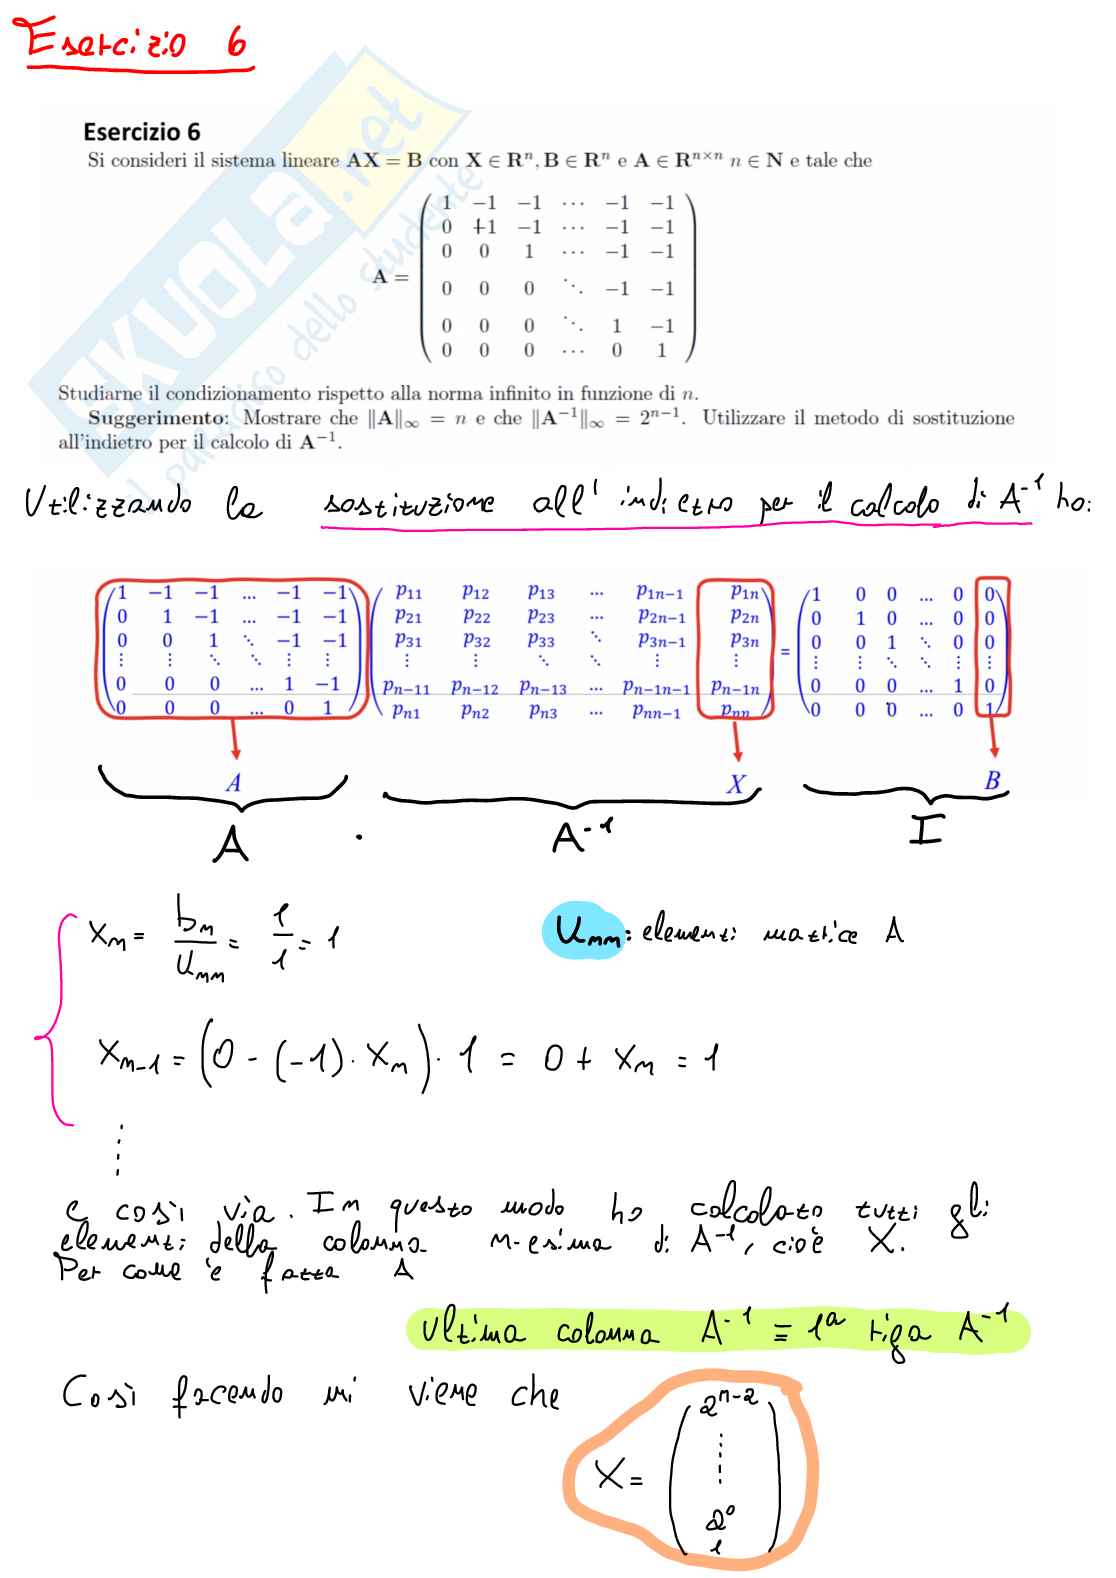 Esercizio 6
Esercizio 6
Si consideri il sistema lineare AX = B con X ∈ Rⁿ, B ∈ Rⁿ e A ∈ Rⁿˣⁿ n ∈ N e tale che
1 −1 −1 ⋯ −1 −1
0 +1 −1 ⋯ −1 −1
0 0 1 ⋯ −1 −1
A =
0 0 0 ⋱ −1 −1
0 0 0 ⋱ 1 −1
0 0 0 ⋯ 0 1
Studiarne il condizionamento rispetto alla norma infinito in funzione di n.
Suggerimento: Mostrare che ‖A‖∞ = n e che ‖A⁻¹‖∞ = 2ⁿ⁻¹. Utilizzare il metodo di sostituzione
all'indietro per il calcolo di A⁻¹.
SKUOLA.net
il paradiso dello studente
Utilizzando la sostituzione all'indietro per il calcolo di A⁻¹ ho:
1 −1 −1 ... −1 −1 p11 p12 p13 ... p1n−1 p1n 1 0 0 ... 0 0
0 1 −1 ... −1 −1 p21 p22 p23 ... p2n−1 p2n 0 1 0 ... 0 0
0 0 1 ⋱ −1 −1 p31 p32 p33 ⋱ p3n−1 p3n 0 0 1 ⋱ 0 0
⋮ ⋮ ⋱ ⋱ ⋮ ⋮ ⋮ ⋮ ⋱ ⋱ ⋮ ⋮ = ⋮ ⋮ ⋱ ⋱ ⋮ ⋮
0 0 0 ... 1 −1 pn−11 pn−12 pn−13 ... pn−1n−1 pn−1n 0 0 0 ... 1 0
0 0 0 ... 0 1 pn1 pn2 pn3 ... pnn−1 pnn 0 0 0 ... 0 1
A X B
A · A⁻¹ I
xn = bn/unn = 1/1 = 1 unn: elementi matrice A
xn−1 = (0 − (−1) · xn) · 1 = 0 + xn = 1
⋮
e così via. In questo modo ho calcolato tutti gli
elementi della colonna n-esima di A⁻¹, cioè X.
Per come è fatta A
Ultima colonna A⁻¹ ≡ 1ª riga A⁻¹
Così facendo mi viene che
2ⁿ⁻²
⋮
X =
2⁰
1